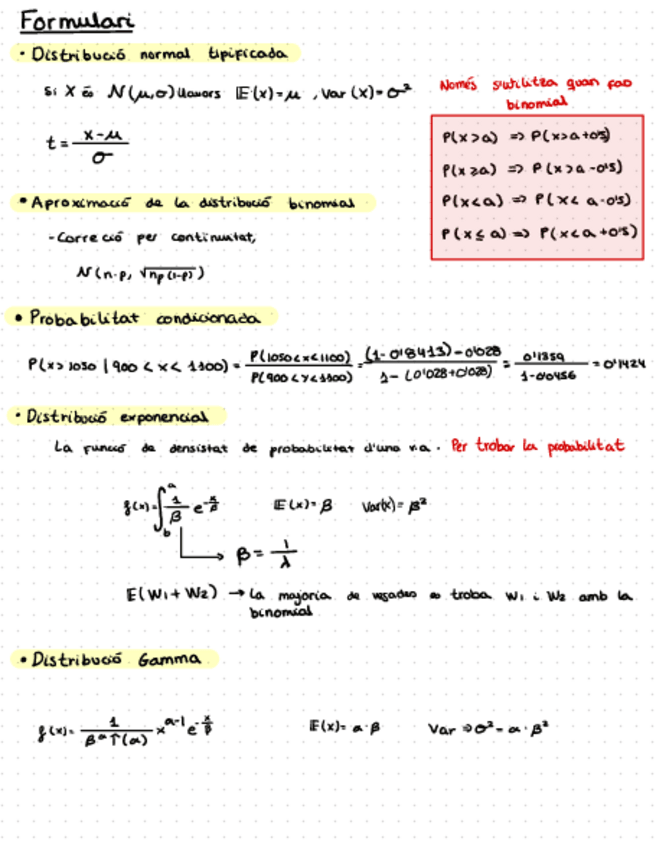 Formulari
• Distribució normal tipificada
Si X és N(μ,σ) llavors E(x)=μ , Var(x)=σ²
Només s'utilitza quan fas
binomial
t = (x-μ)/σ
P(x>a) => P(x>a+0'5)
P(x≥a) => P(x>a-0'5)
P(x<a) => P(x<a-0'5)
P(x≤a) => P(x<a+0'5)
• Aproximació de la distribució binomial
- Correció per continuitat,
N(n·p, √np(1-p))
• Probabilitat condicionada
P(x>1050 | 900<x<1100) = P(1050<x<1100)/P(900<x<1100) = (1-0'8413)-0'028/1-(0'028+0'028) = 0'1359/1-0'0456 = 0'1424
• Distribució exponencial
La funció de densistat de probabilitat d'una v.a. Per trobar la probabilitat
f(x)=∫ₐᵇ 1/β e^(-x/β) E(x)=β Var(x)=β²
β = 1/λ
E(W1+W2) → La majoria de vegades es troba W1 i W2 amb la
binomial
• Distribució Gamma
f(x)= 1/(β^α Γ(α)) x^(α-1) e^(-x/β) E(x)= α·β Var ⇒ σ² = α·β²